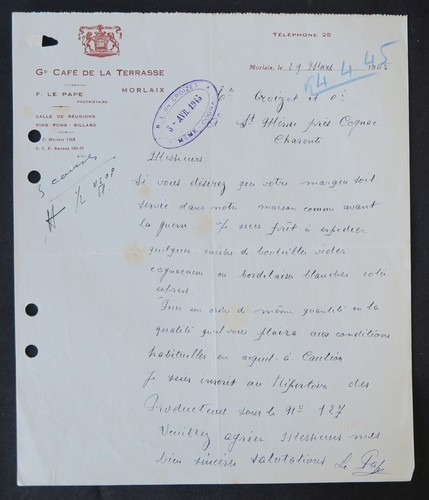 TÉLÉPHONE 26
Gᴰ CAFÉ DE LA TERRASSE
MORLAIX
F. LE PAPE
PROPRIÉTAIRE
SALLE DE RÉUNIONS
PING-PONG - BILLARD
Morlaix, le 29 Mars 1945
4 4 45
AVR. 1945
Croizet et Cie
St Même près Cognac
Charente
3 caisses
1/2 VSOP
Messieurs
Si vous désirez que votre marque soit
servie dans notre maison comme avant
la guerre je suis prêt à expédier
quelques caisses de bouteilles vides
cognacaises ou bordelaises blanches colis
express.
Pour un ordre de même quantité en la
qualité qu'il vous plaira aux conditions
habituelles ou argent à Caution
Je suis inscrit au Répertoire des
Producteurs sous le Nº 127
Veuillez agréer Messieurs mes
bien sincères salutations Le Pape